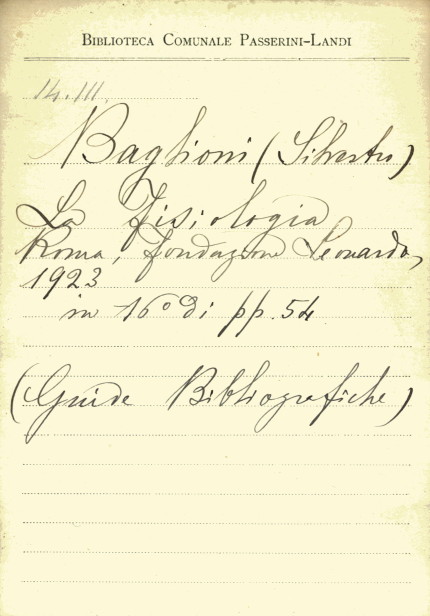 BIBLIOTECA COMUNALE PASSERINI-LANDI
14.III.
Baglioni (Silvestro)
La Fisiologia
Roma, fondazione Leonardo,
1923
in 16º di pp. 54
(Guide Bibliografiche)